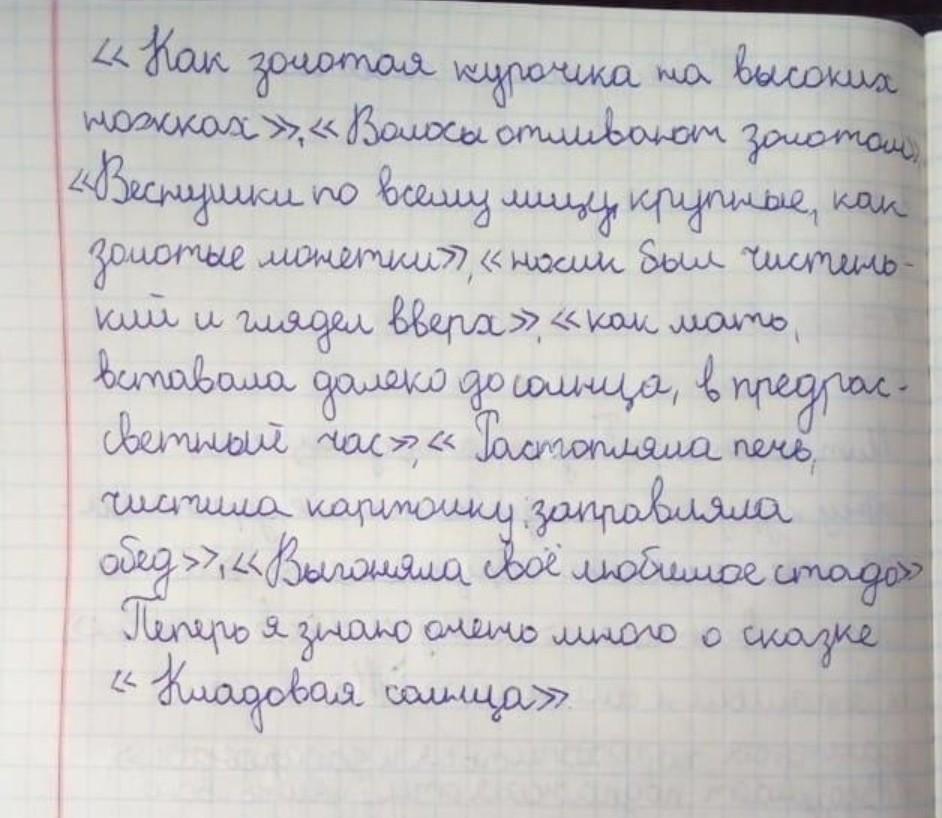 «Как золотая курочка на высоких
ножках», «Волосы отливают золотом»,
«Веснушки по всему лицу, крупные, как
золотые монетки», «носик был чистень-
кий и глядел вверх», «как мать,
вставала далеко до солнца, в предрас-
светный час», «Растопляла печь,
чистила картошку, заправляла
обед», «Выгоняла своё любимое стадо»
Теперь я знаю очень много о сказке
«Кладовая солнца».